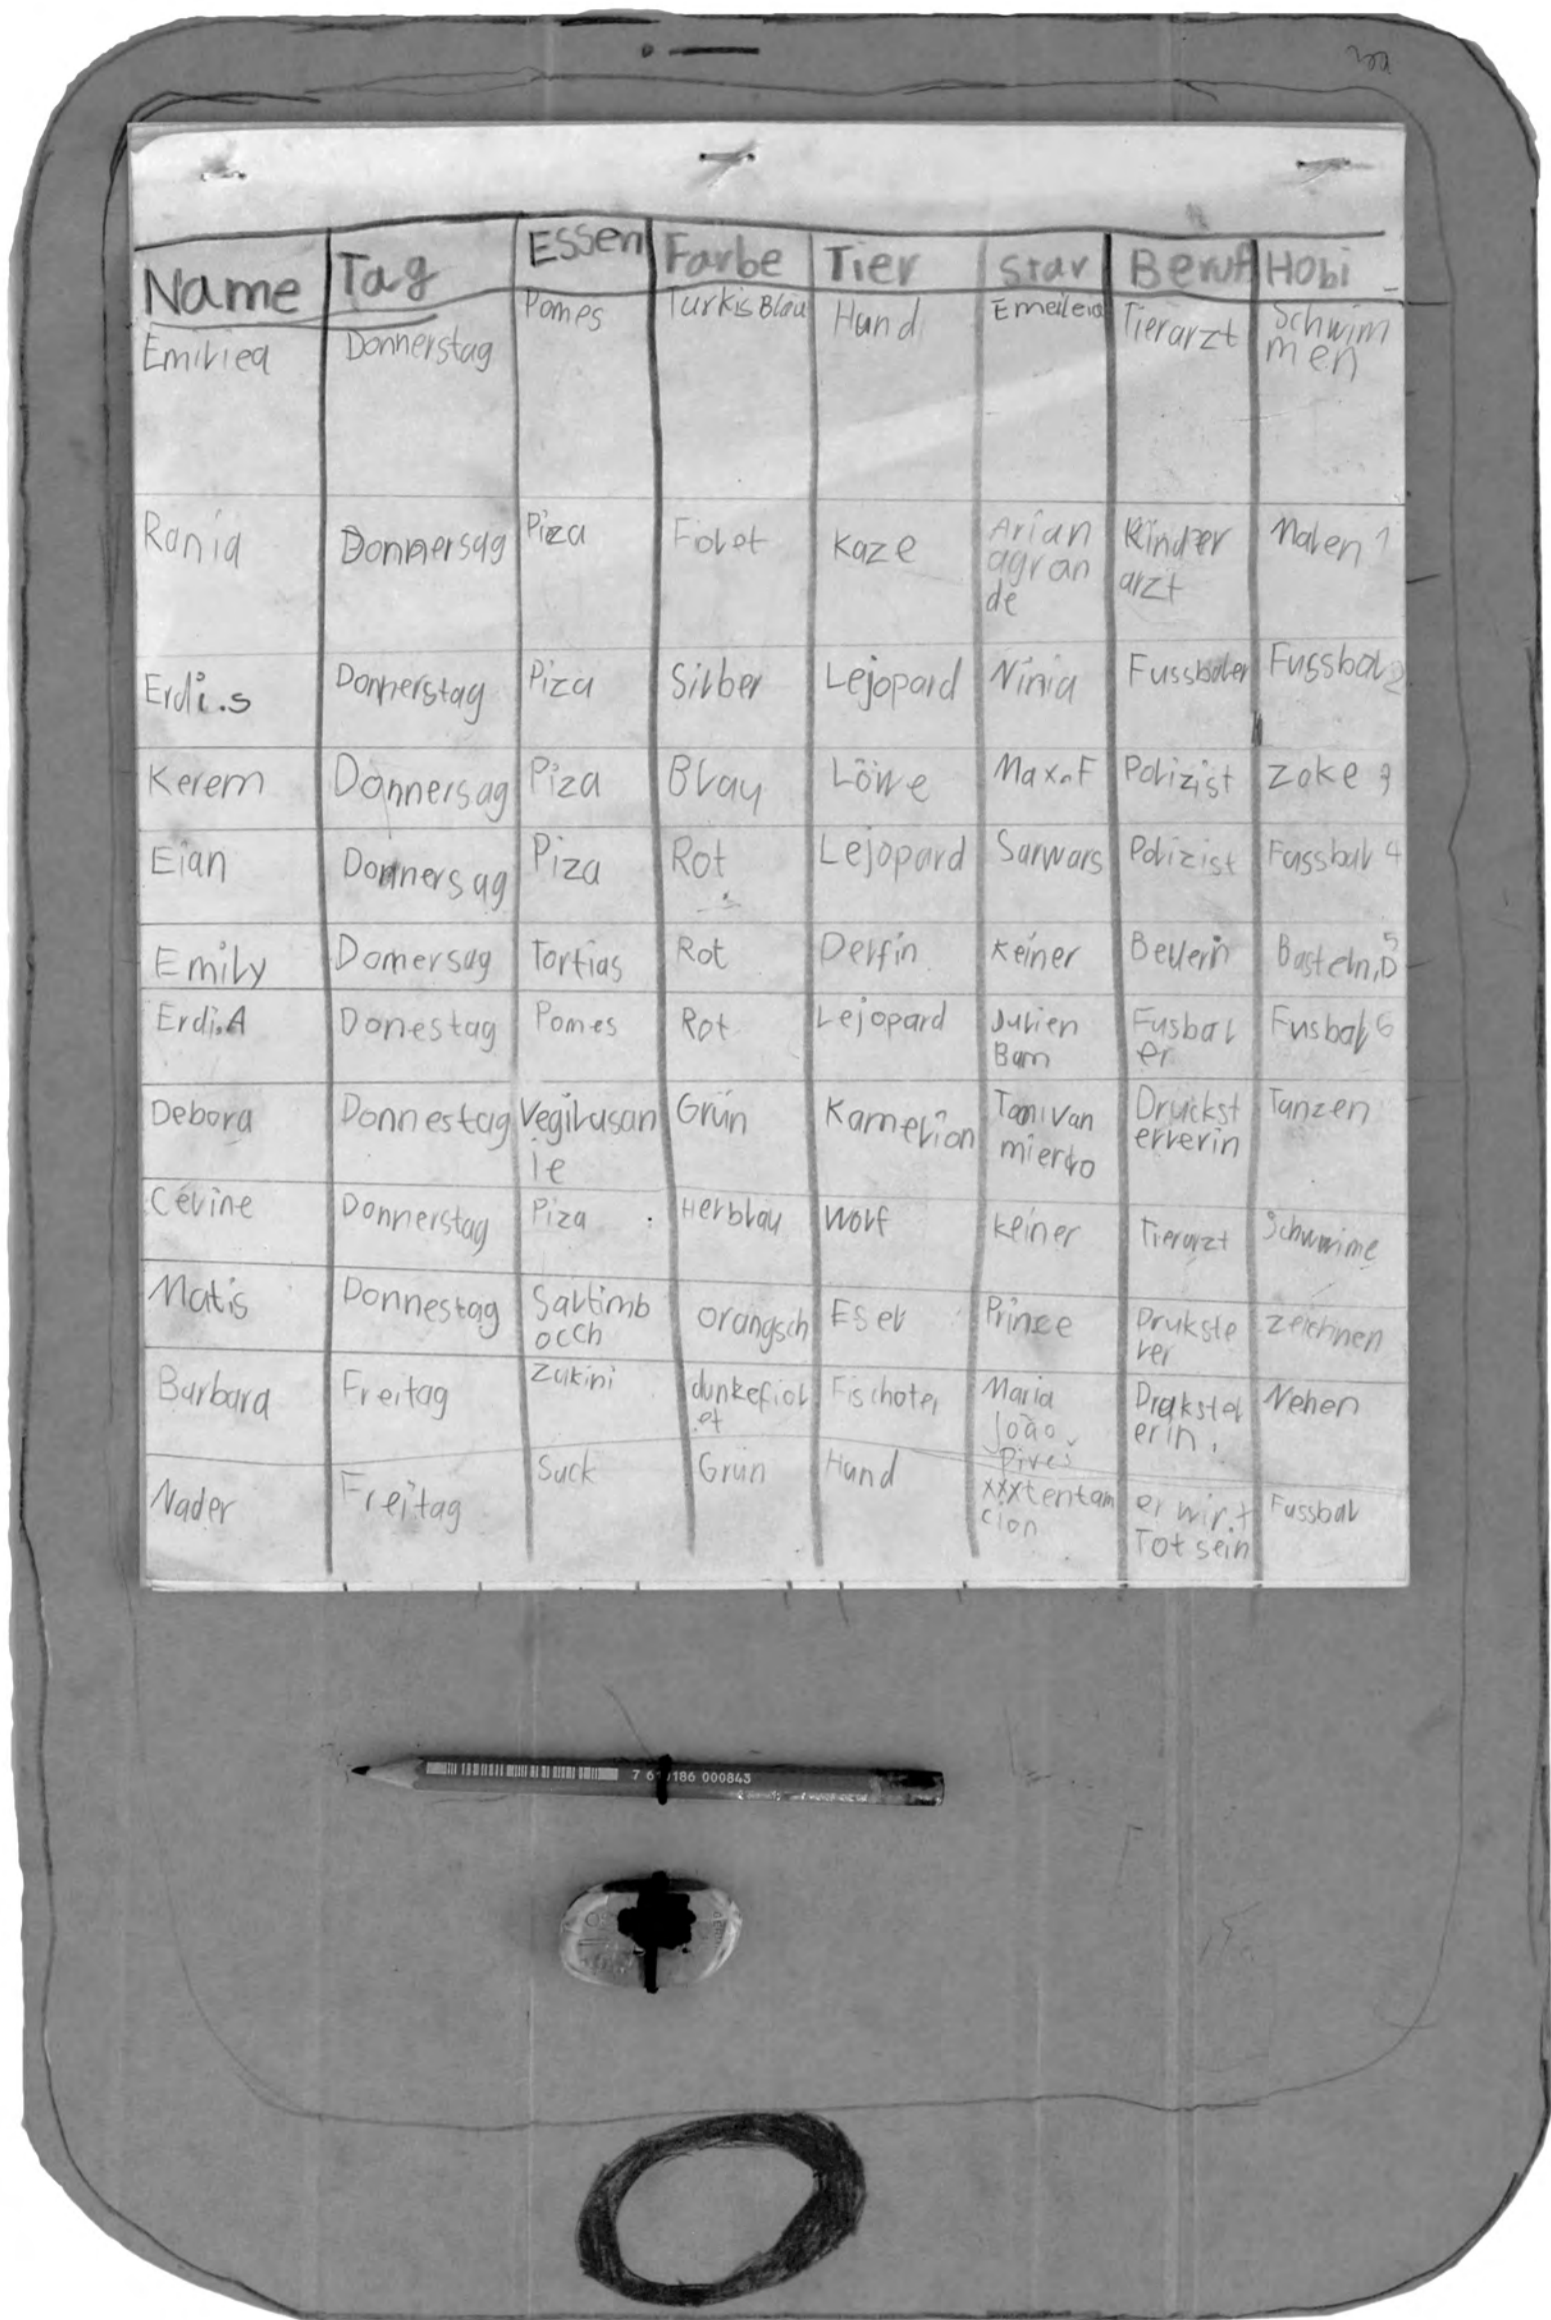 Name Tag Essen Farbe Tier Star Beruf Hobi
Emiliea Donnerstag Pomes Turkis Blau Hund Emeileia Tierarzt Schwim
men
Rania Donnersag Piza Fiolet Kaze Arian Kinder Malen 1
agran arzt
de
Erdi.s Donnerstag Piza Silber Lejopard Ninia Fussbaler Fussbal 2
Kerem Donnersag Piza Blau Löwe Max.F Polizist Zoke 3
Eian Donnersag Piza Rot Lejopard Sarwars Polizist Fussbal 4
Emily Donnersag Tortias Rot Delfin Keiner Bellerin Basteln,D 5
Erdi.A Donestag Pomes Rot Lejopard Julien Fusbal Fusbal 6
Bam er
Debora Donnestag Vegilasan Grün Kamelion Tomi van Druckst Tanzen
ie mierlo ellerin
Celine Donnerstag Piza Helblau Wolf keiner Tierarzt Schwime
Matis Donnestag Saltimb orangsch Esel Prince Drukste zeichnen
occh ler
Barbara Freitag Zukini dunkefiol Fischoter Maria Drukstel Nehen
et João erin.
Pires
Nader Freitag Suck Grün Hund xxxtentam er wirt Fussbal
cion Tot sein
186 000843